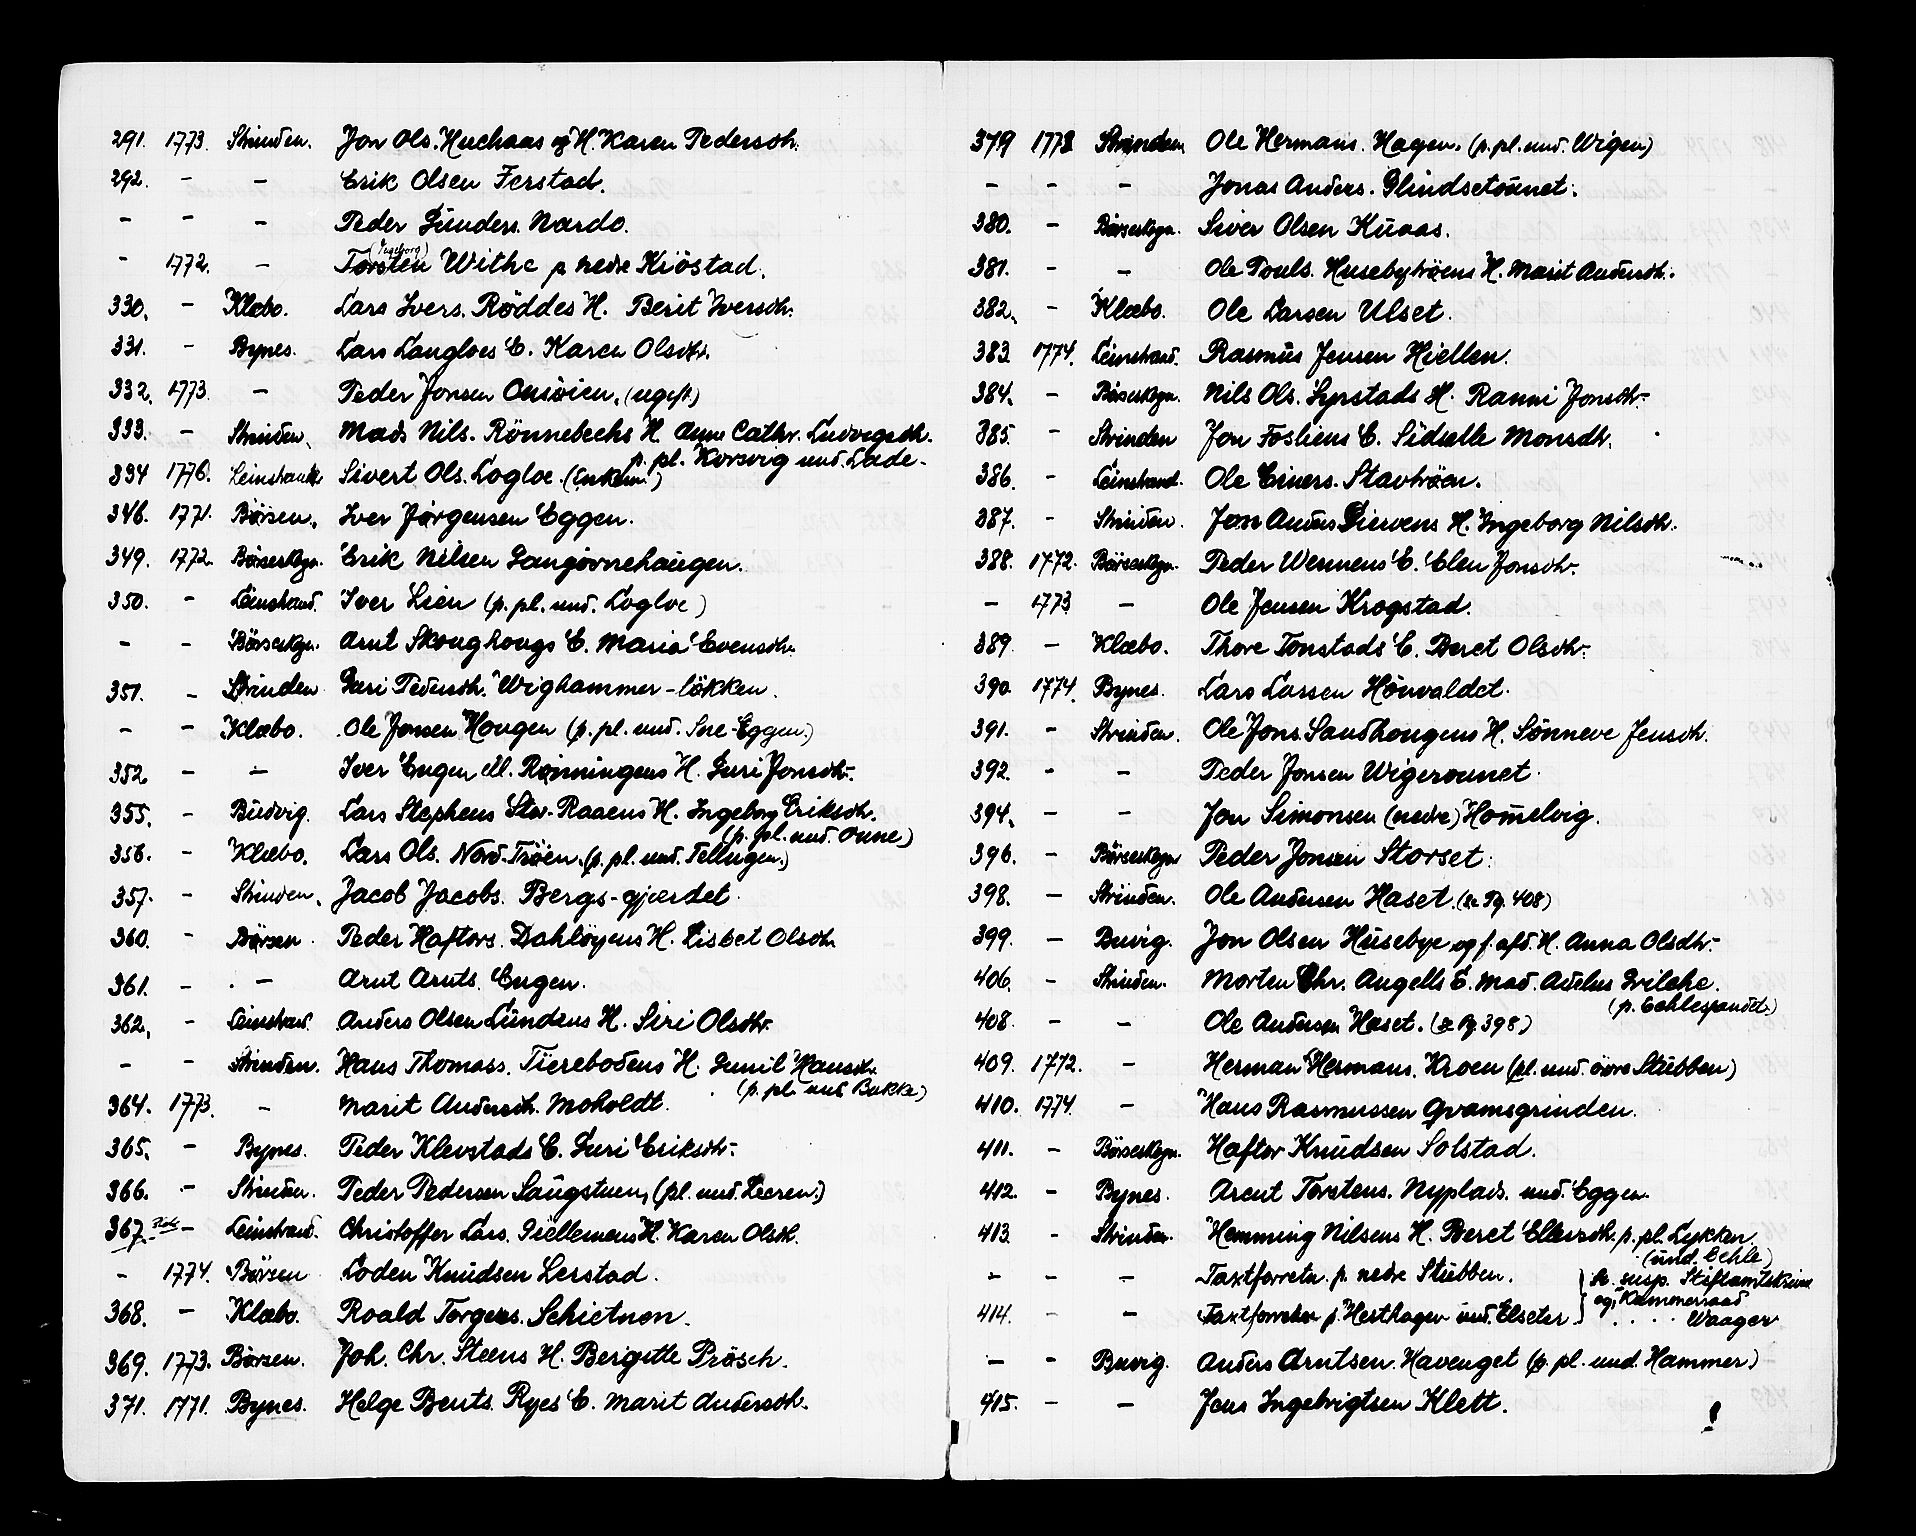 291. 1773. Strinden. Jon Ols. Huchaas og H. Karen Pedersdtr.
292. - - Erik Olsen Ferstad.
- - - Peder Gunders. Nardo.
(Ingeborg)
- 1772. - Torsten Withe p. nedre Kiöstad.
330. - Klæbo. Lars Ivers. Röddes H. Berit Iversdtr.
331. - Bynes. Lars Langloes E. Karen Olsdtr.
332. 1773. - Peder Jonsen Onsöien. (ugift)
333. - Strinden. Mads Nils. Rönnebechs H. Anne Cathr. Ludvigsdtr.
p. pl. Korsvig und. Lade.
334 1776. Leinstrand. Sivert Ols. Logloe.
346. 1771. Börsen. Iver Jørgensen Eggen.
349. 1772. Börseskgn. Erik Nilsen Langörnehaugen.
350. - Leinstrand. Iver Lien (p. pl. und. Logloe)
- - Börseskgn. Arnt Skoughougs E. Maria Evensdtr.
351. - Strinden Guri Pedersdtr. Wighammer-lökken.
- - Klæbo. Ole Jonsen Hougen (p. pl. und. Sne-Eggen.)
352 - - Iver Engen ell. Rönningens H. Guri Jonsdtr.
355. - Budvig. Lars Stephens Stor-Raaens H. Ingeborg Eriksdtr.
(p. pl. und. Onne)
356. - Klæbo. Lars Ols. Nord-Tröen. (p. pl. und. Tellugen.)
357. - Strinden. Jacob Jacobs. Bergs-gjærdet.
360. - Börsen. Peder Haftors. Dahlöyens H. Lisbet Olsdtr.
361. - - Arnt Arnts. Engen.
362. - Leinstrand. Anders Olsen Lundens H. Siri Olsdtr.
- - Strinden. Hans Thomass. Tierebodens H. Gunil Hansdtr.
(p. pl. und Bakke)
364. 1773. - Marit Andersdtr. Moholdt.
365. - Bynes. Peder Klevstads E. Guri Eriksdtr.
366. - Strinden. Peder Pedersen Saugstuen, (pl. und. Leeren.)
367. - Leinstrand. Christoffer Lars. Giellemens H. Karen Olsdtr.
- 1774. Börsen Loden Knudsen Lerstad.
368. - Klæbo. Roald Torgers. Schietnen.
369. 1773. Börsen. Joh. Chr. Steens H. Bergitte Prösch.
371. 1771. Bynes. Helge Bents. Ryes E. Marit Andersdtr.
379 1773 Strinden Ole Hermans. Hagen. (p. pl. und. Wigen)
- - - Jonas Anders. Glindsetounet.
380. - Börseskgn. Siver Olsen Kuaas.
381. - - Ole Pouls. Husebytröens H. Marit Andersdtr.
382. - Klæbo. Ole Larsen Ulset.
383. 1774. Leinstrand. Rasmus Jensen Hiellen.
384. - Börseskgn. Nils Ols. Lyrstads H. Ranni Jonsdtr.
385. - Strinden Jon Fosliens E. Sidselle Monsdtr.
386. - Leinstrand. Ole Einers. Stavtröen.
387. - Strinden. Jon Anders Dierens H. Ingeborg Nilsdtr.
388. 1772. Börseskgn. Peder Wennens E. Elen Jonsdtr.
- 1773 - Ole Jensen Krogstad.
389. - Klæbo. Thore Tonstads E. Beret Olsdtr.
390. 1774. Bynes. Lars Lassen Hönvaldet.
391. - Strinden. Ole Jons. Sandhougens H. Sönneve Jensdtr.
392. - - Peder Jonsen Wigerounet.
394. - - Jon Simonsen (nedre) Homelvig.
396. - Börseskgn Peder Jonsen Storset.
398. - Strinden. Ole Andersen Haset. (se Pg. 408)
399. - Buvig. Jon Olsen Husebye og f. afd. H. Anna Olsdtr.
406. - Strinden. Morten Chr. Angells E. Mad. Adelus Grilche.
(p. Echlespandet.)
408. - - Ole Andersen Haset. (se Pg 398)
409. 1772. - Herman Hermans. Kroen (pl. und. övre Stubben)
410. 1774. - Hans Rasmussen Qvamsgrinden.
411. - Börseskgn. Haftor Knudsen Solstad.
412. - Bynes. Arent Torstens. Nyplads. und. Eggen.
413. - Strinden. Hemming Nilsens H. Beret Ellersdtr. p. pl. Lykken
(und. Echle)
- - - Taxtforretn. p. nedre Stubben. } susp. Stiftamtskriver
414. - - Taxtforretn p. Hesthagen und. Elseter } og Kammerraad
. . . . Waager
- - Buvig. Anders Arntsen Havenget (p. pl. und. Hammer)
415. - - Jens Ingebrigtsen Klett.